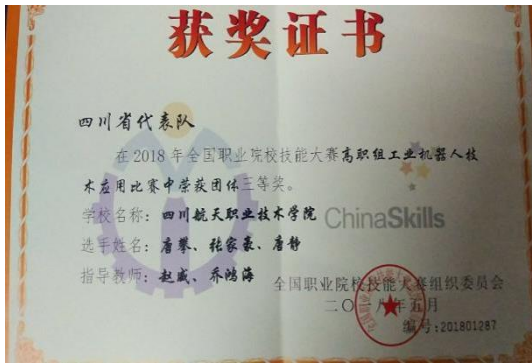 获奖证书
四川省代表队
在2018年全国职业院校技能大赛高职组工业机器人技
术应用比赛中荣获团体三等奖。
学校名称：四川航天职业技术学院
ChinaSkills
选手姓名：唐攀、张家豪、唐静
指导教师：赵威、乔鸿海
全国职业院校技能大赛组织委员会
二〇一八年五月
编号:201801287